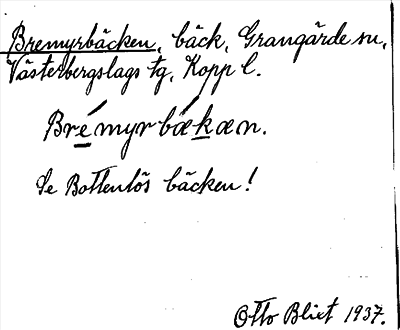 Bremyrbäcken, bäck, Grangärde sn,
Västerbergslags tg, Kopp l.
Brémyrbǽkæn.
Se Bottenlös bäcken!
Otto Blixt 1937.